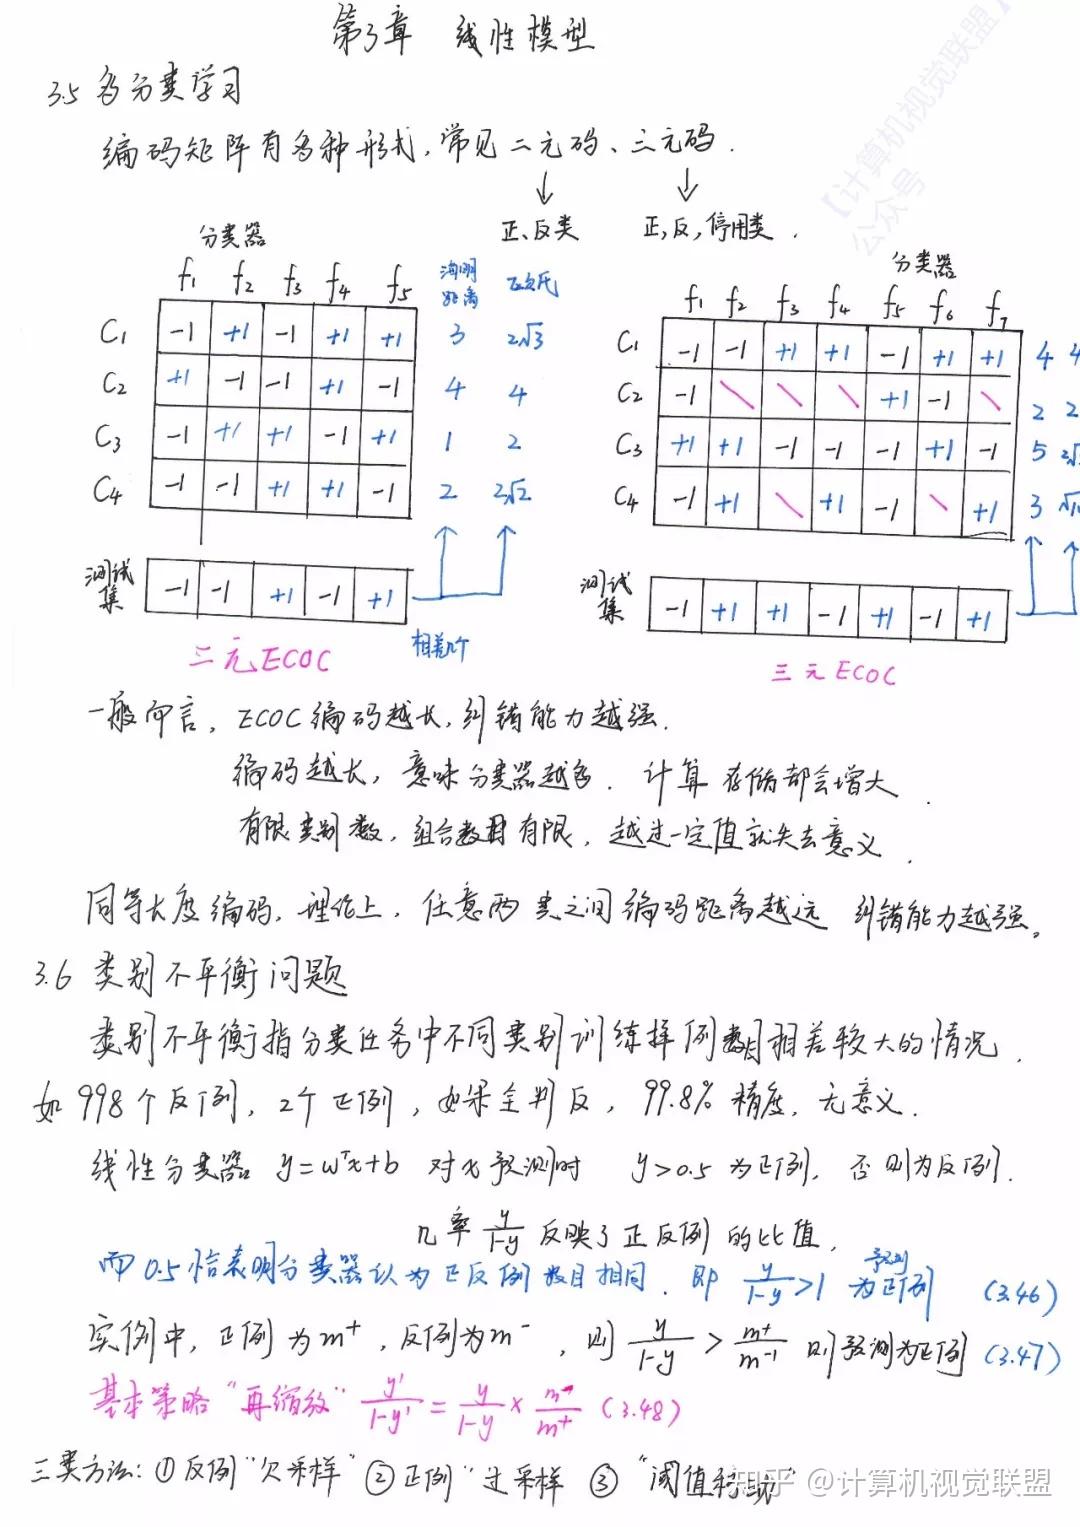 第3章 线性模型
【计算机视觉联盟】
公众号
3.5 多分类学习
编码矩阵有多种形式,常见二元码、三元码.
正、反类 正,反,停用类.
分类器
f₁ f₂ f₃ f₄ f₅ 海明距离 欧氏
C₁ -1 +1 -1 +1 +1 3 2√3
C₂ +1 -1 -1 +1 -1 4 4
C₃ -1 +1 +1 -1 +1 1 2
C₄ -1 -1 +1 +1 -1 2 2√2
测试集 -1 -1 +1 -1 +1
相差几个
二元ECOC
分类器
f₁ f₂ f₃ f₄ f₅ f₆ f₇
C₁ -1 -1 +1 +1 -1 +1 +1 4 4
C₂ -1 \ \ \ +1 -1 \ 2 2
C₃ +1 +1 -1 -1 -1 +1 -1 5
C₄ -1 +1 \ +1 -1 \ +1 3
测试集 -1 +1 +1 -1 +1 -1 +1
三元ECOC
一般而言,ECOC编码越长,纠错能力越强.
编码越长,意味分类器越多.计算存储都会增大.
有限类别数,组合数目有限,越过一定值就失去意义.
同等长度编码,理论上,任意两类之间编码距离越远 纠错能力越强。
3.6 类别不平衡问题
类别不平衡指分类任务中不同类别训练样例数目相差较大的情况.
如998个反例,2个正例,如果全判反,99.8%精度,无意义.
线性分类器 y=wᵀx+b 对x预测时 y>0.5为正例,否则为反例.
几率 y/1-y 反映了正反例的比值,
而0.5恰表明分类器认为正反例数目相同.即 y/1-y>1 预测为正例 (3.46)
实例中,正例为m⁺,反例为m⁻,则 y/1-y > m⁺/m⁻¹ 则预测为正例 (3.47)
基本策略“再缩放” y'/1-y' = y/1-y × m⁻/m⁺ (3.48)
三类方法:①反例“欠采样” ②正例“过采样 ③“阈值移动”
知乎 @计算机视觉联盟